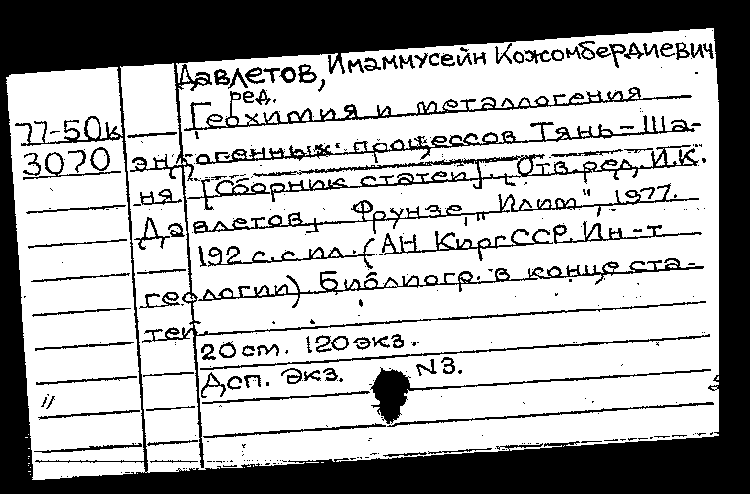 Давлетов, Имаммусейн Кожомбердиевич
ред.
77-50к Геохимия и металлогения
3070 эндогенных процессов Тянь-Ша-
ня. [Сборник статей]. [Отв. ред. И.К.
Давлетов]. Фрунзе, "Илим", 1977.
192 с. с ил. (АН КиргССР. Ин-т
геологии) Библиогр. в конце ста-
тей.
20 см. 120 экз.
Дсп. Экз. N3.